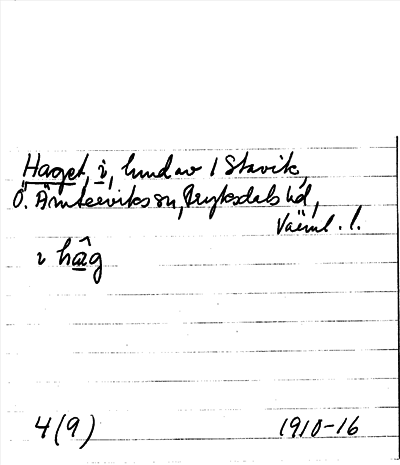 Haget, i, lund av 1 Stavik,
Ö. Ämterviks sn, Fryksdals hd,
Värml. l.
i håg
4(9) 1910-16